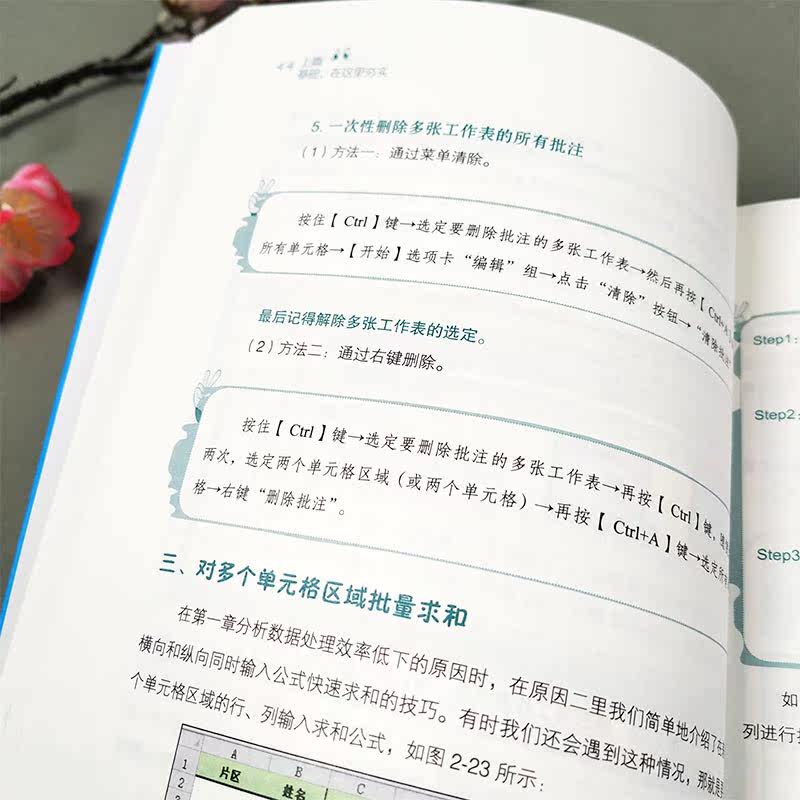 44 上篇
基础，在这里夯实
5. 一次性删除多张工作表的所有批注
（1）方法一：通过菜单清除。
按住【 Ctrl 】键→选定要删除批注的多张工作表→然后再按【 Ctrl+A
所有单元格→【开始】选项卡“编辑”组→点击“清除”按钮→“清除批注”
最后记得解除多张工作表的选定。
（2）方法二：通过右键删除。
按住【 Ctrl 】键→选定要删除批注的多张工作表→再按【 Ctrl 】键，
两次，选定两个单元格区域（或两个单元格）→再按【 Ctrl+A 】键→选定所
格→右键“删除批注”。
三、对多个单元格区域批量求和
在第一章分析数据处理效率低下的原因时，在原因二里我们简单地介绍了在
横向和纵向同时输入公式快速求和的技巧。有时我们还会遇到这种情况，那就是
个单元格区域的行、列输入求和公式，如图 2-23 所示：
A B C
1 片区 姓名
2
Step1:
Step2:
Step3
如
列进行